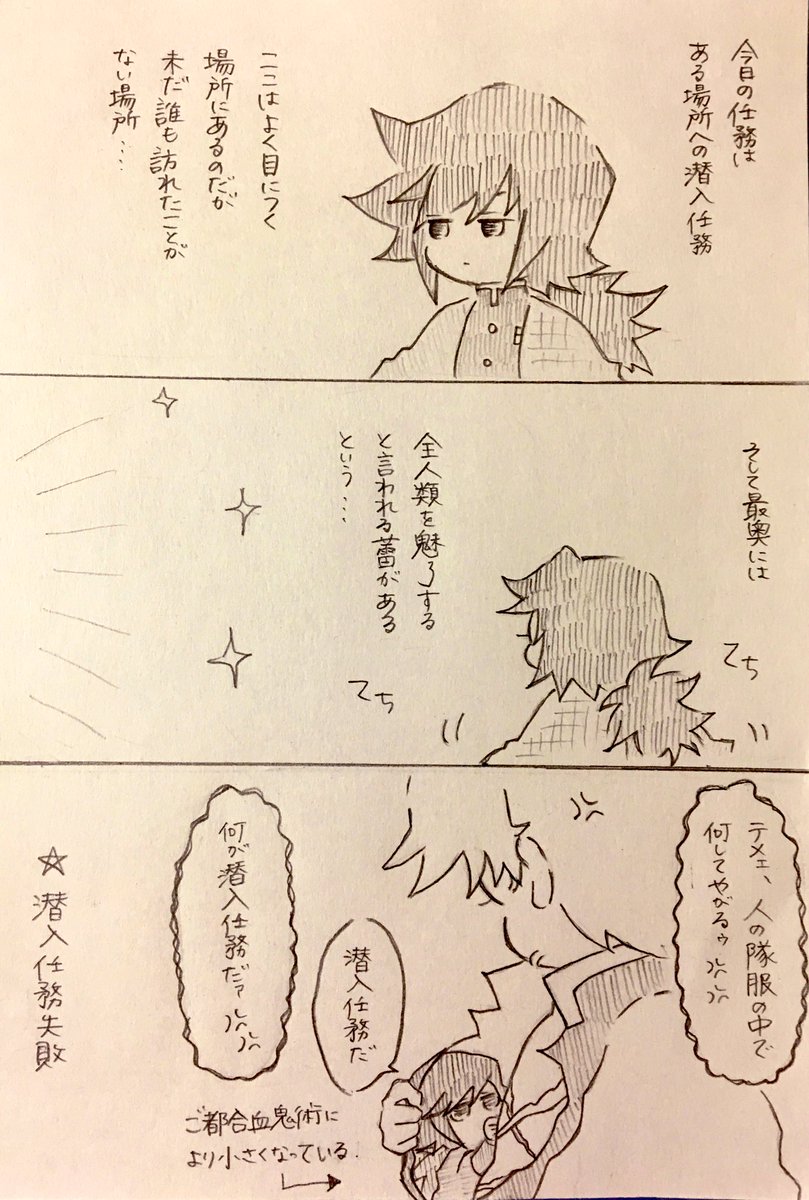 今日の任務は
ある場所への潜入任務
ここはよく目につく
場所にあるのだが
未だ誰も訪れたことが
ない場所…
そして最奥には
てち
全人類を魅了する
と言われる蕾がある
という…
てち
テメェ、人の隊服の中で
何してやがるゥ
潜入任務だ
何が潜入任務だァ
ご都合血鬼術に
より小さくなっている
☆潜入任務失敗